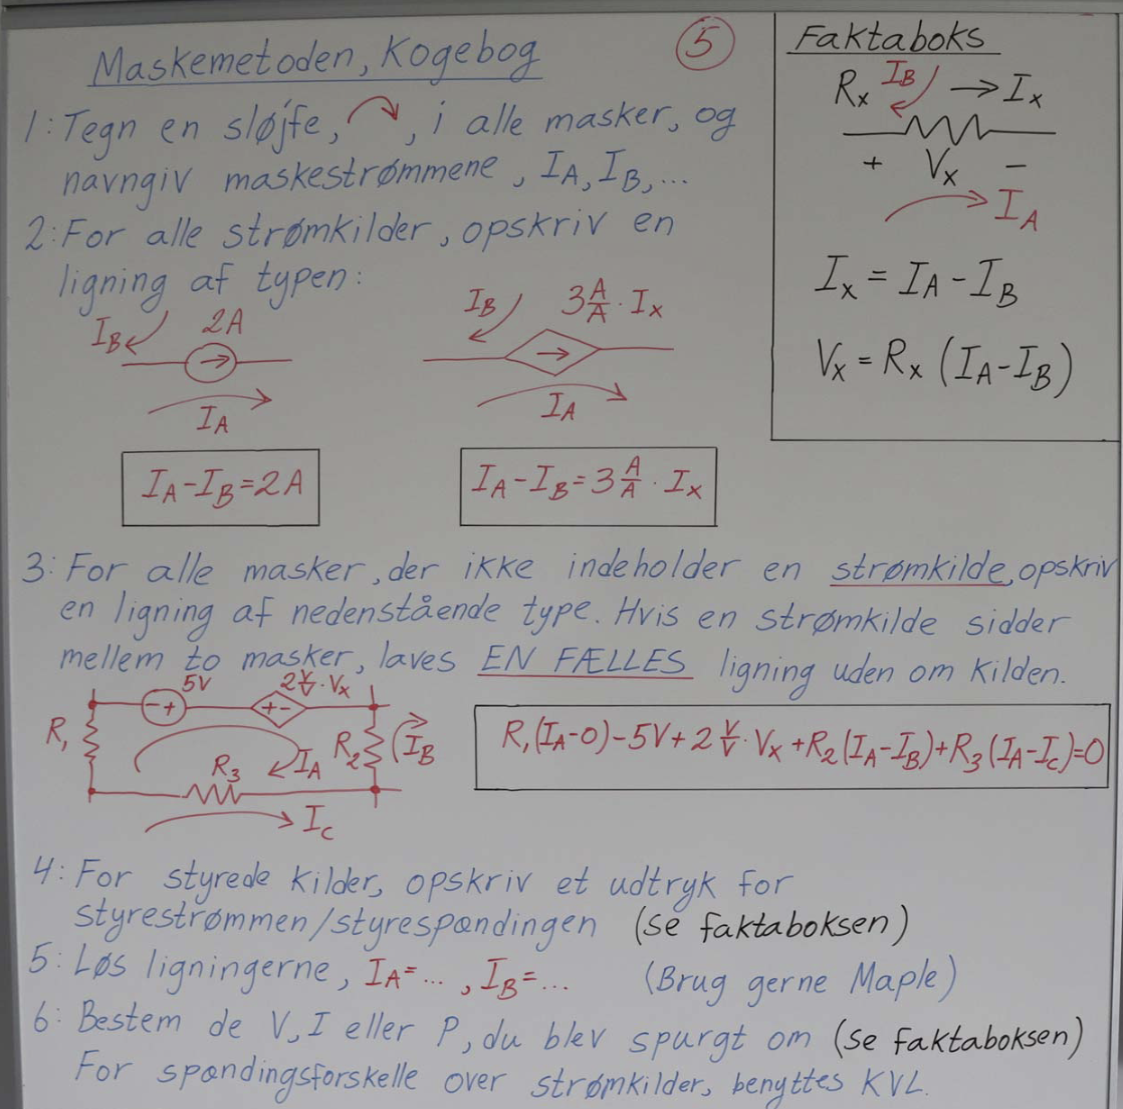 Maskemetoden, Kogebog
5
1: Tegn en sløjfe, , i alle masker, og
navngiv maskestrømmene, I_A, I_B, ...
2: For alle strømkilder, opskriv en
ligning af typen:
I_B 2A
I_A
I_A - I_B = 2A
I_B 3 A/A · I_x
I_A
I_A - I_B = 3 A/A · I_x
Faktaboks
R_x I_B → I_x
+ V_x -
I_A
I_x = I_A - I_B
V_x = R_x (I_A - I_B)
3: For alle masker, der ikke indeholder en strømkilde, opskriv
en ligning af nedenstående type. Hvis en strømkilde sidder
mellem to masker, laves EN FÆLLES ligning uden om kilden.
5V 2 V/V · V_x
- + + -
R_1 I_A R_2 I_B
R_3
I_C
R_1 (I_A - 0) - 5V + 2 V/V · V_x + R_2 (I_A - I_B) + R_3 (I_A - I_C) = 0
4: For styrede kilder, opskriv et udtryk for
styrestrømmen/styrespændingen (se faktaboksen)
5: Løs ligningerne, I_A = ... , I_B = ... (Brug gerne Maple)
6: Bestem de V, I eller P, du blev spurgt om (se faktaboksen)
For spændingsforskelle over strømkilder, benyttes KVL.